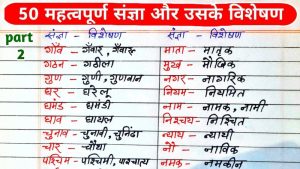 50 महत्वपूर्ण संज्ञा और उसके विशेषण
part 2
संज्ञा - विशेषण संज्ञा - विशेषण
गाँव - गँवार, गँवारू माता - मातृक
गठन - गठीला मुख - मौखिक
गुण - गुणी, गुणवान नगर - नागरिक
घर - घरेलू नियम - नियमित
घमंड - घमंडी नाम - नामक, नामी
घाव - घायल निश्चय - निश्चित
चुनाव - चुनावी, चुनिंदा न्याय - न्यायी
चार - चौथा नौ - नाविक
पश्चिम - पश्चिमी, पाश्चात्य नमक - नमकीन